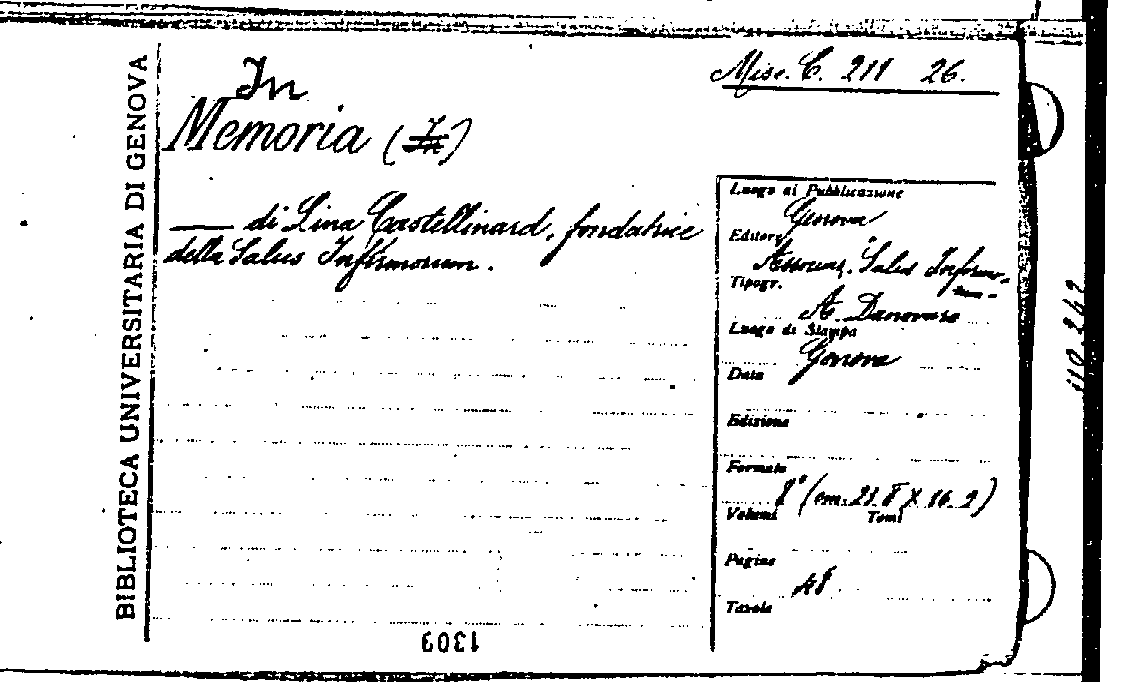 BIBLIOTECA UNIVERSITARIA DI GENOVA
Misc. C. 211 26.
In
Memoria (In)
di Lina Castellinard, fondatrice
della Salus Infirmorum.
Luogo di Pubblicazione
Genova
Editore
Associaz. Salus Infirmo-
rum-
Tipogr.
A. Danovaro
Luogo di Stampa
Genova
Data
Edizione
Formato
8° (cm. 21.8 X 16.2)
Volumi Tomi
Pagine
48
Tavole
1309